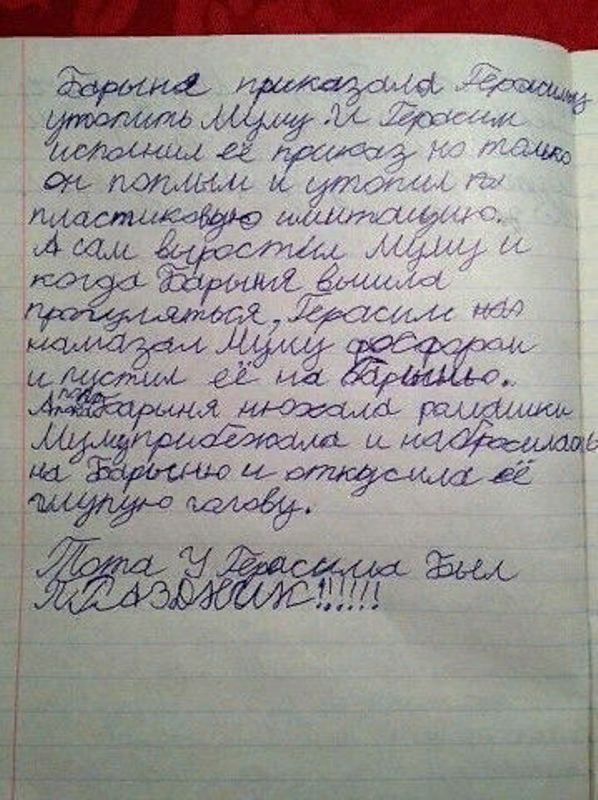 Барыня приказала Герасиму
утопить Муму. И Герасим
исполнил её приказ но только
он поплым и утопил
пластиковую имитацию.
А сам выростил Муму и
когда Барыня вышла
прогуляться, Герасим
намазал Муму фосфором
и пустил её на барыню.
А пока барыня нюхала ромашки
Муму прибежала и набросилась
на Барыню и откусила её
глупую голову.
Тота У Герасима Был
ПРАЗДНИК!!!!!!